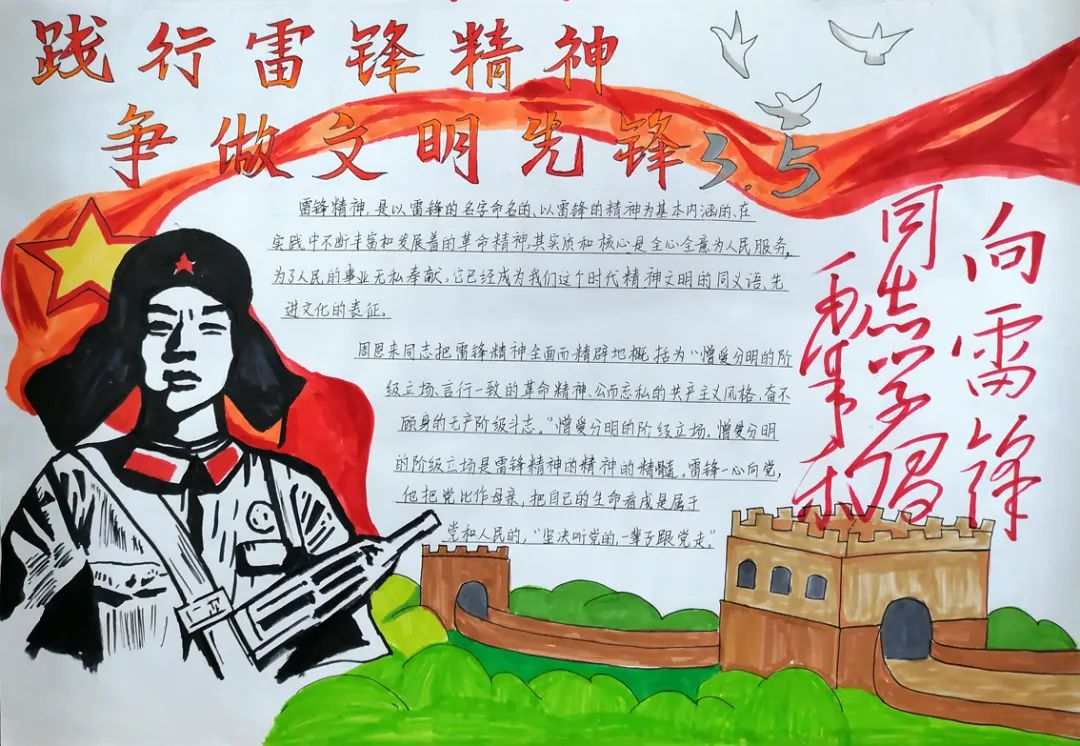 践行雷锋精神
争做文明先锋 3.5
雷锋精神,是以雷锋的名字命名的、以雷锋的精神为基本内涵的、在
实践中不断丰富和发展着的革命精神,其实质和核心是全心全意为人民服务,
为了人民的事业无私奉献。它已经成为我们这个时代精神文明的同义语、先
进文化的表征。
周恩来同志把雷锋精神全面而精辟地概括为“憎爱分明的阶
级立场、言行一致的革命精神、公而忘私的共产主义风格、奋不
顾身的无产阶级斗志。”憎爱分明的阶级立场。憎爱分明
的阶级立场是雷锋精神的精神的精髓。雷锋一心向党,
他把党比作母亲,把自己的生命看成是属于
党和人民的,“坚决听党的,一辈子跟党走。”
向雷锋
同志学习
毛泽东